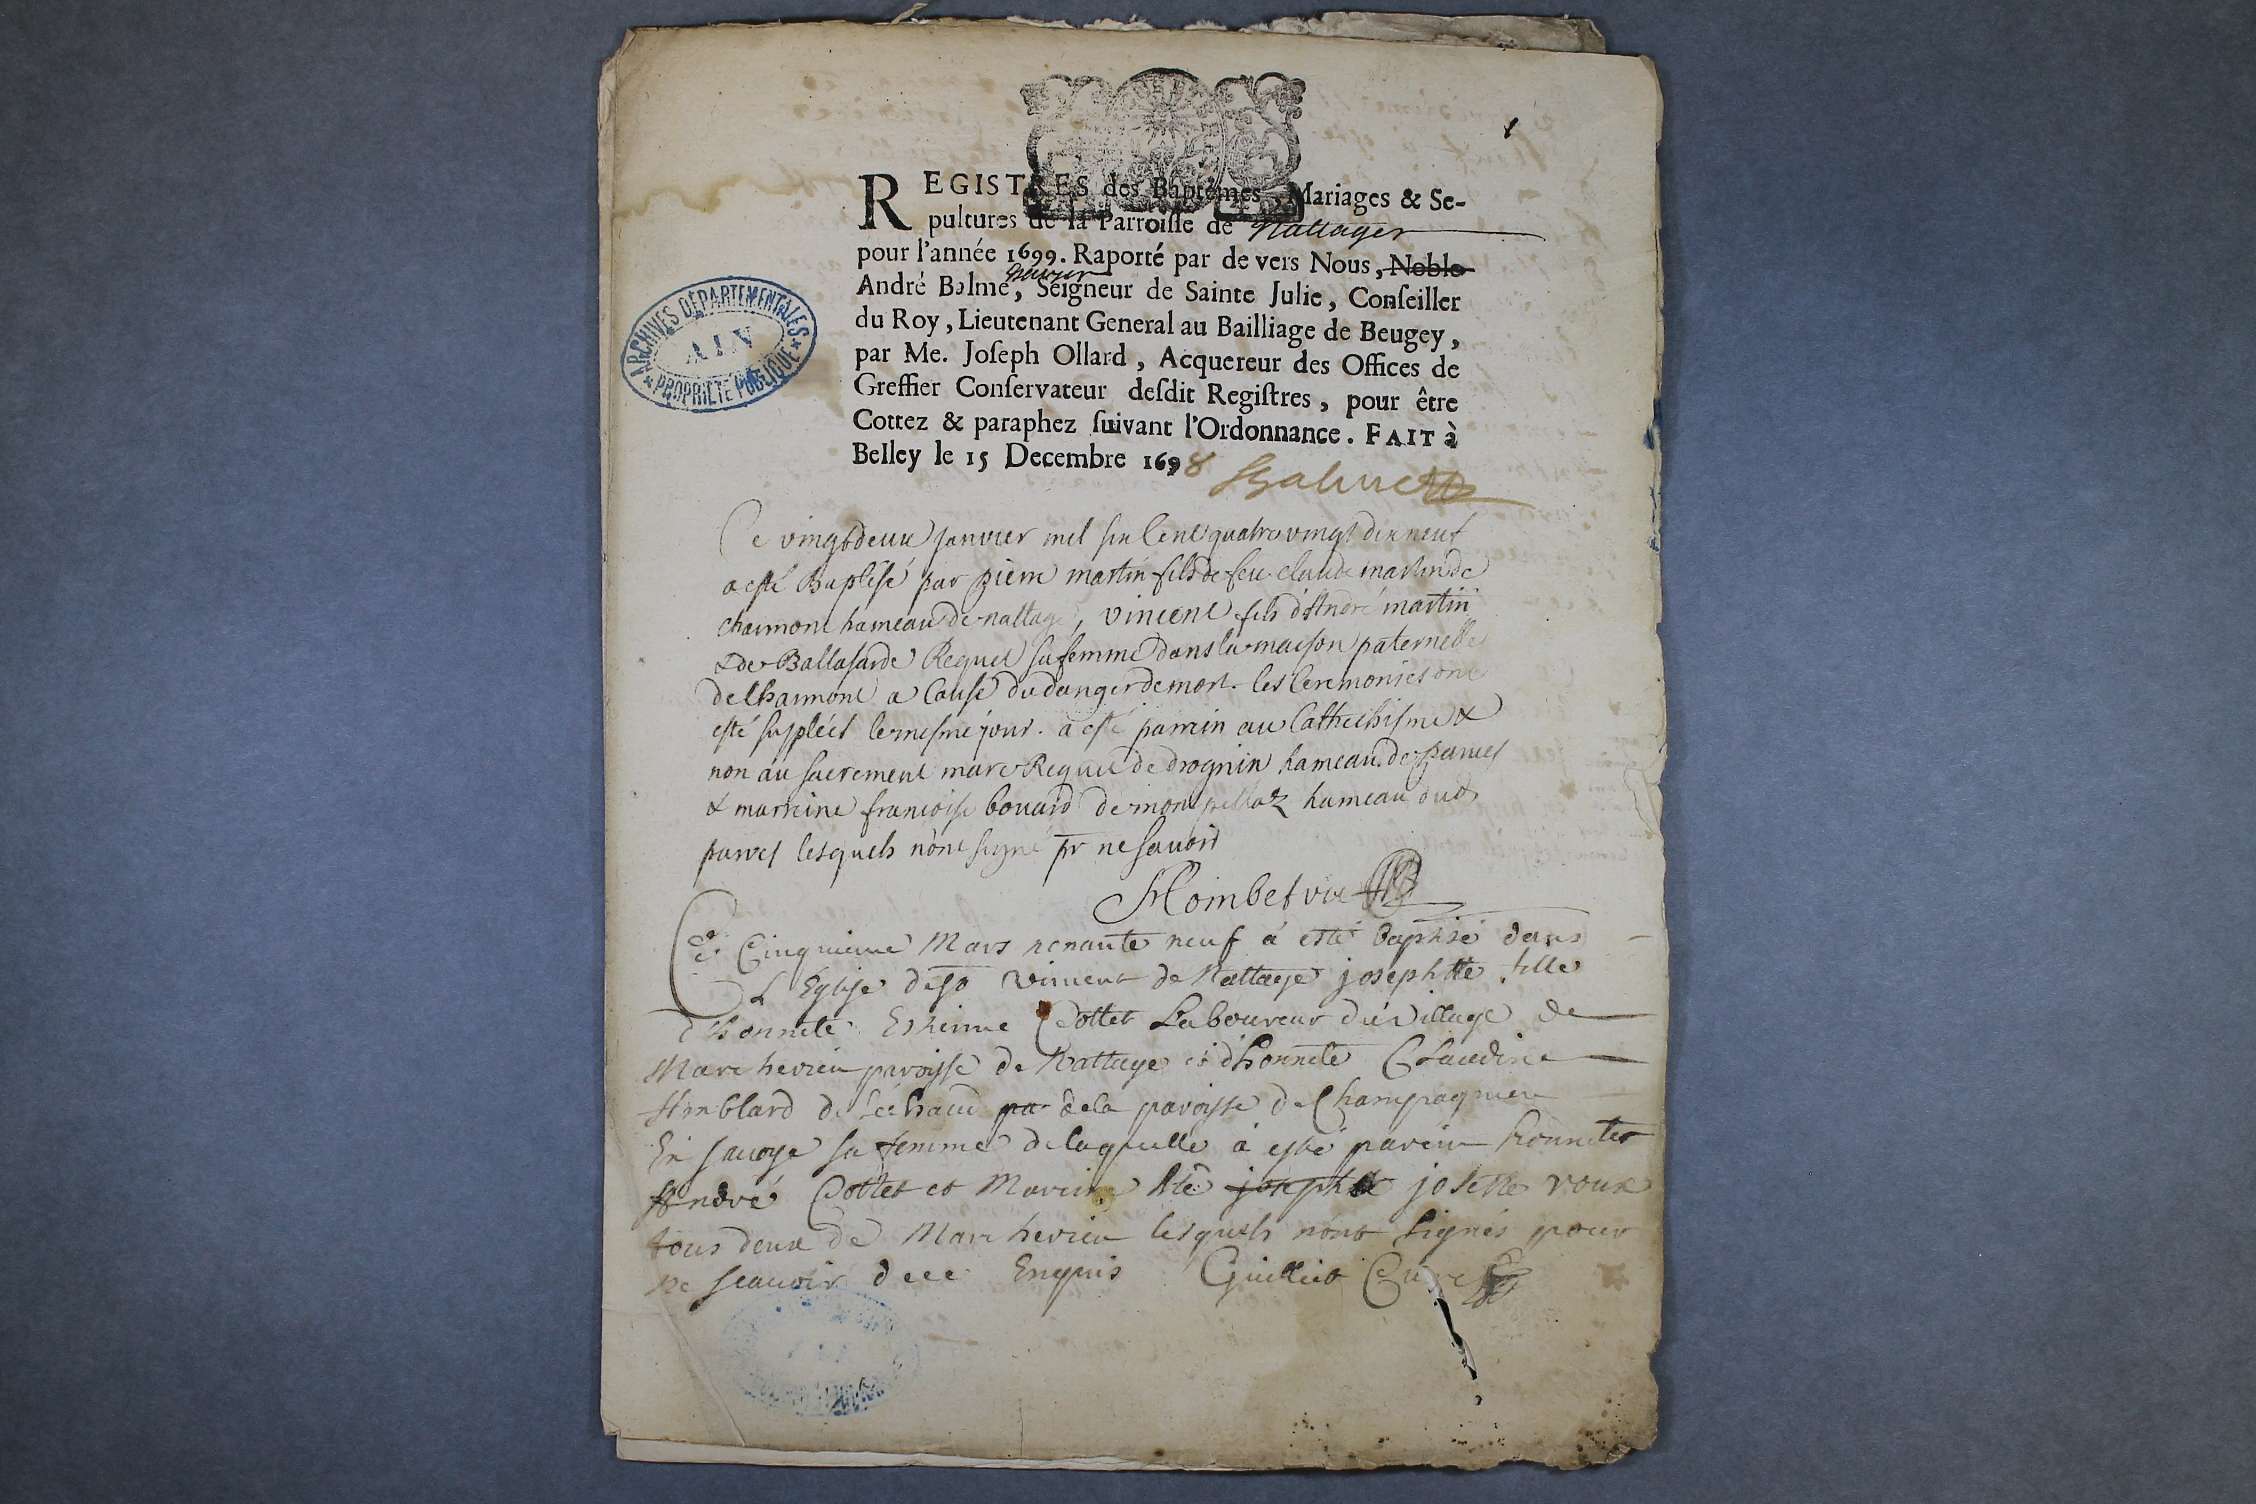 REGISTRES des Baptêmes, Mariages & Se-
pultures de la Parroisse de Nattages
pour l'année 1699. Raporté par de vers Nous, Noble
André Balme, Seigneur de Sainte Julie, Conseiller
du Roy, Lieutenant General au Bailliage de Beugey,
par Me. Joseph Ollard, Acquereur des Offices de
Greffier Conservateur desdit Registres, pour être
Cottez & paraphez suivant l'Ordonnance. FAIT à
Belley le 15 Decembre 1698
Balme
ARCHIVES DÉPARTEMENTALES
AIN
PROPRIÉTÉ PUBLIQUE
Ce vingtdeux janvier mil six Cent quatre vingt dix neuf
a esté Baptisé par pierre martin fils de feu claude martin de
charmont hameau de nattage, vincent fils d'André martin
& de Ballasarde Requet sa femme dans la maison paternelle
de Charmont a Cause du danger de mort. les Ceremonies ont
esté supléés le mesme jour. a esté parrin au Cathechisme &
non au sacrement marc Requet de drognin hameau de parves
& marreine francoise bovard de montpellaz hameau dud
parves lesquels n'ont signé pr ne savoir
Mombet vic
Ce Cinquieme Mars nonante neuf à esté baptisé dans
L'Eglise de St vincent de Nattage josephtte fille
d'honnete Estienne Cottet Laboureur du village de
Marcherieu paroisse de Nattage et d'honnete Claudine
Amblard de la paroisse de Champagnieu
En savoye sa femme de laquelle à esté parein honnete
André Cottet et Mareine hte josephte josette roux
tous deux de Marcherieu lesquels n'ont signés pour
ne scavoir de ce Enquis Guilliet Curé